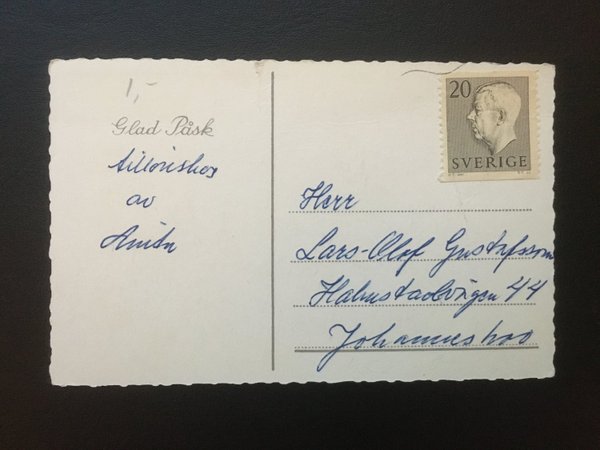 1,-
Glad Påsk
tillönskas
av
Anita
20
SVERIGE
Herr
Lars-Olof Gustafsson
Halmstadvägen 44
Johanneshov